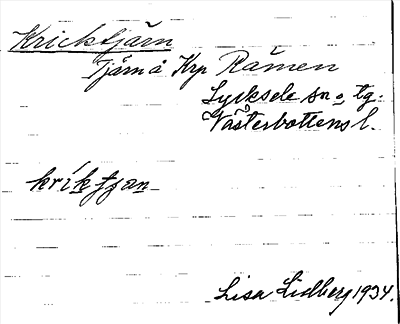 Kricktjärn
Tjärn å Krp Råmen
Lycksele sn o tg.
Västerbottens l.
kriktjan
Lisa Lidberg 1934.